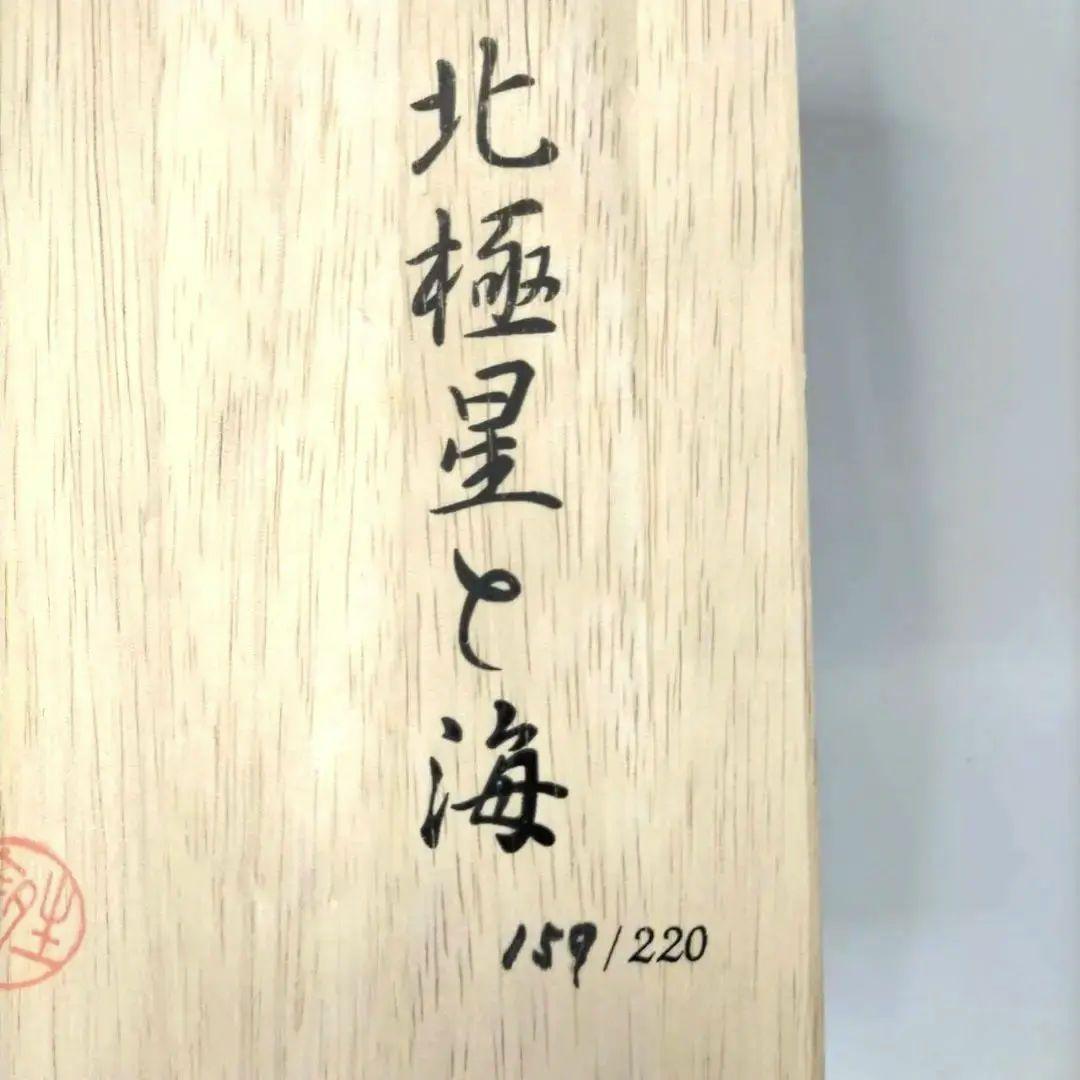 北極星と海
159/220